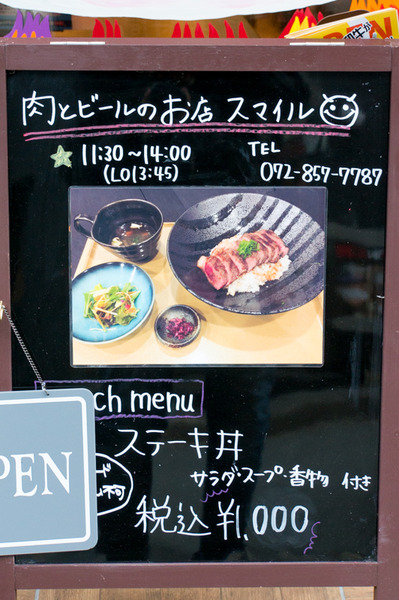 肉とビールのお店 スマイル
11:30~14:00
(LO13:45)
TEL
072-857-7787
ch menu
ステーキ丼
サラダ・スープ・香物 付き
PEN
不可
税込 ¥1,000